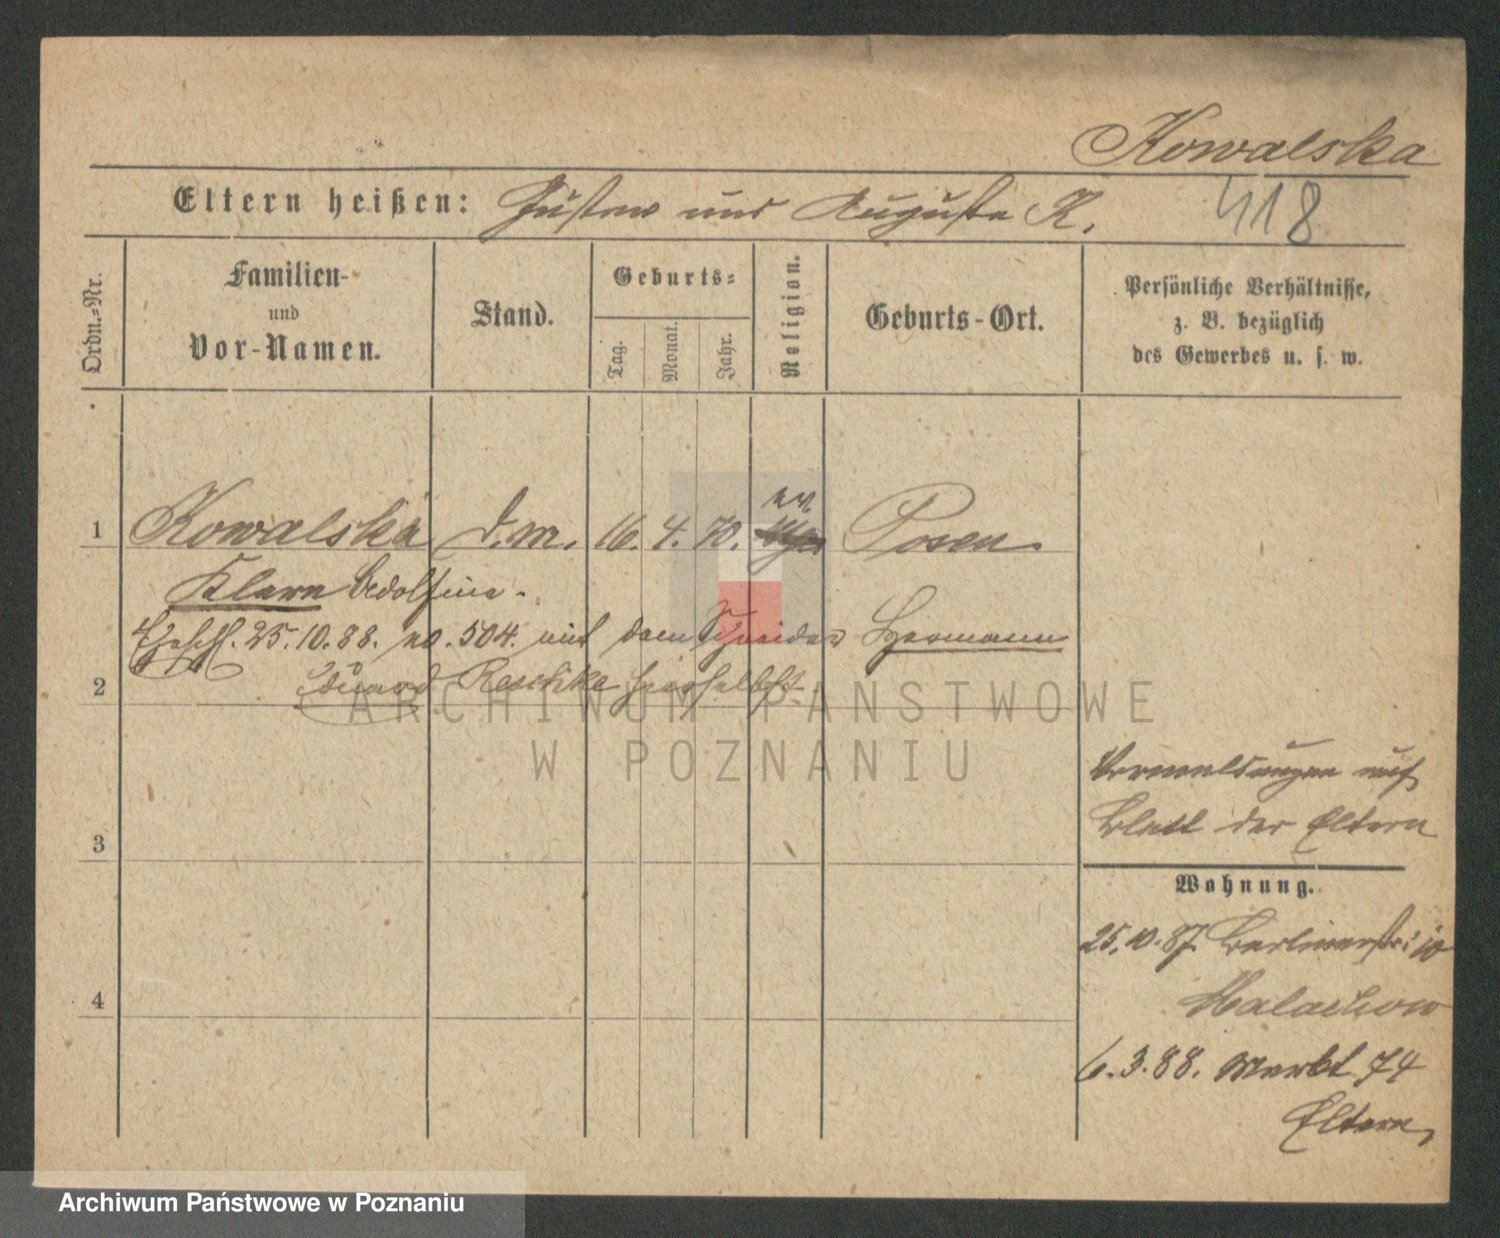 Kowalska
Eltern heißen: Gustav und Auguste K. 418
Ordn.-Nr.
Familien-
und
Vor-Namen.
Stand.
Geburts-
Tag. Monat. Jahr.
Religion.
Geburts-Ort.
Persönliche Verhältnisse,
z. B. bezüglich
des Gewerbes u. s. w.
ev.
1 Kowalska d. m. 16. 4. 70. Posen.
Klara Adolfine.
25.10.88. no. 504. mit dem Schneider Hermann
2 Eduard Reschke hierselbst
ARCHIWUM PAŃSTWOWE
W POZNANIU
3
4
Vermeldungen auf
Blatt der Eltern
Wohnung.
25.10.87. Berlinerstr: 10
Malachow
6.3.88. Markt 74
Eltern,
Archiwum Państwowe w Poznaniu